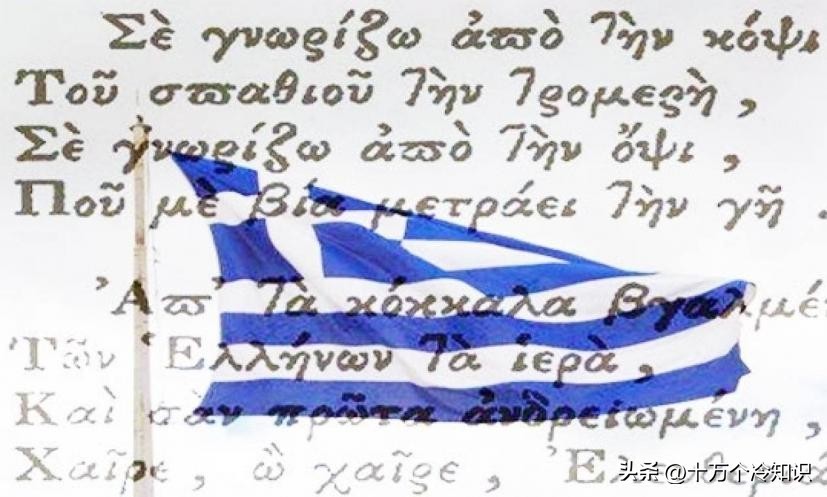 Σὲ γνωρίζω ἀπὸ τὴν κόψι
Τοῦ σπαθιοῦ τὴν τρομερὴ,
Σὲ γνωρίζω ἀπὸ τὴν ὄψι,
Ποῦ μὲ βία μετράει τὴν γῆ.
Ἀπ' τὰ κόκκαλα βγαλμέ
Τῶν Ἑλλήνων τὰ ἱερὰ,
Καὶ σὰν πρῶτα ἀνδρειωμένη,
Χαῖρε, ὦ χαῖρε, Ἐλευθεριά
头条 @十万个冷知识